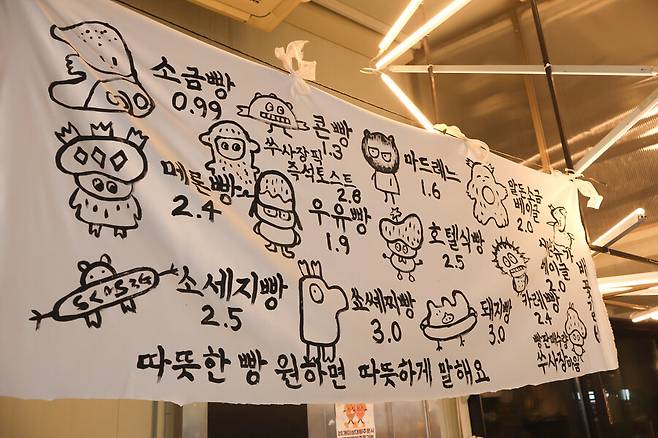 소금빵
0.99
콘빵
1.3
쑤사장픽
즉석토스트
2.8
마드레느
1.6
베이글
2.0
메론빵
2.4
우유빵
1.9
호텔식빵
2.5
베이글
2.0
소세지빵
2.5
쏘세찌빵
3.0
돼지빵
3.0
카레빵
2.4
쑤사장마음
따뜻한 빵 원하면 따뜻하게 말해요